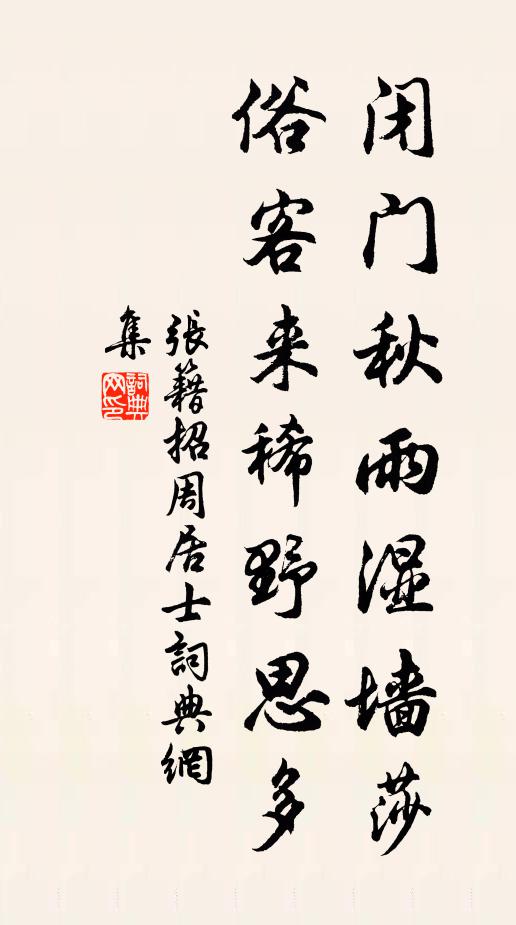 闭门秋雨湿墙莎
俗客来稀野思多
張籍招周居士詞典網
集
詞典
网印